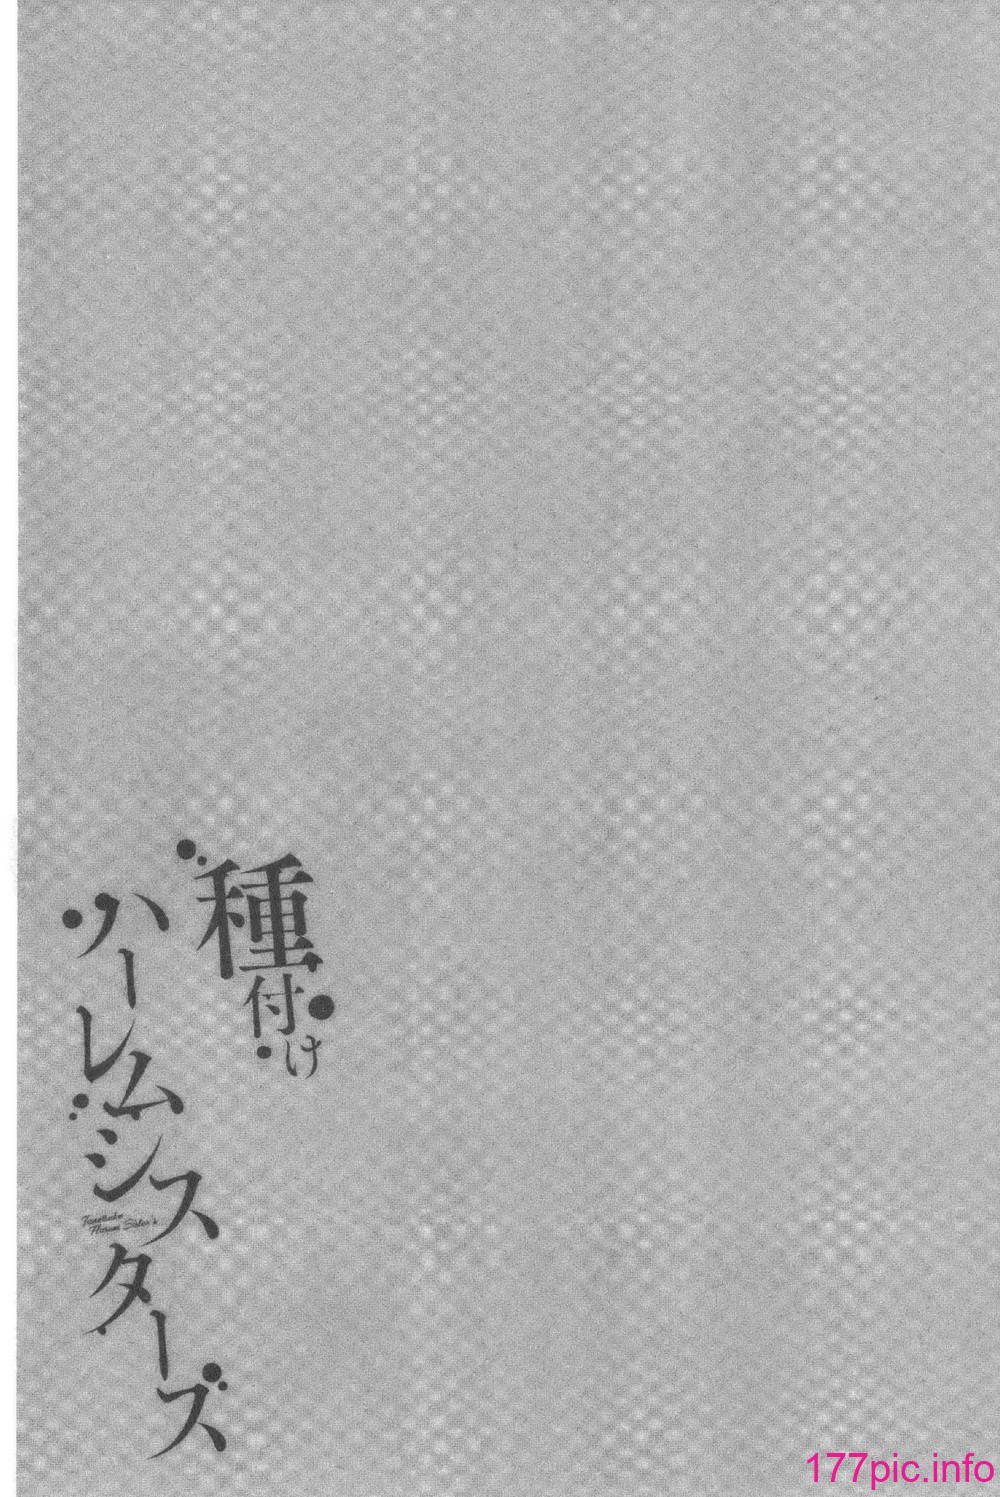 種付け
ハーレムシスターズ
Tanetsuke
Harem Sister's
177pic.info